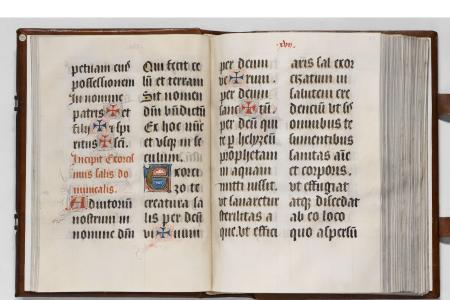 petuam eius
possessionem
In nomine
patris ✠ et
filij ✠ i spi
ritus ✠ sci.
Incipit Exorcis
mus salis do
minicalis.
Adiutorium
nostrum in
nomine dñi
Qui fecit ce
lū et terram
Sit nomen
dñi bñdictū
Ex hoc nūc
et vsq in se
culum.
Exorci
zo te
creatura sa
lis per deū
vi ✠ uum
.xvij.
per deum
ve ✠ rum.
per deum
sanc ✠ tū.
per deū qui
te p helyzeū
prophetam
in aquam
mitti iussit.
vt sanaretur
sterilitas a
que. vt effici
aris sal exor
cizatum in
salutem cre
dencium vt sis
omnibus te
sumentibus
sanitas aīe
et corporis.
vt effugiat
atqz discedat
ab eo loco
quo aspersū